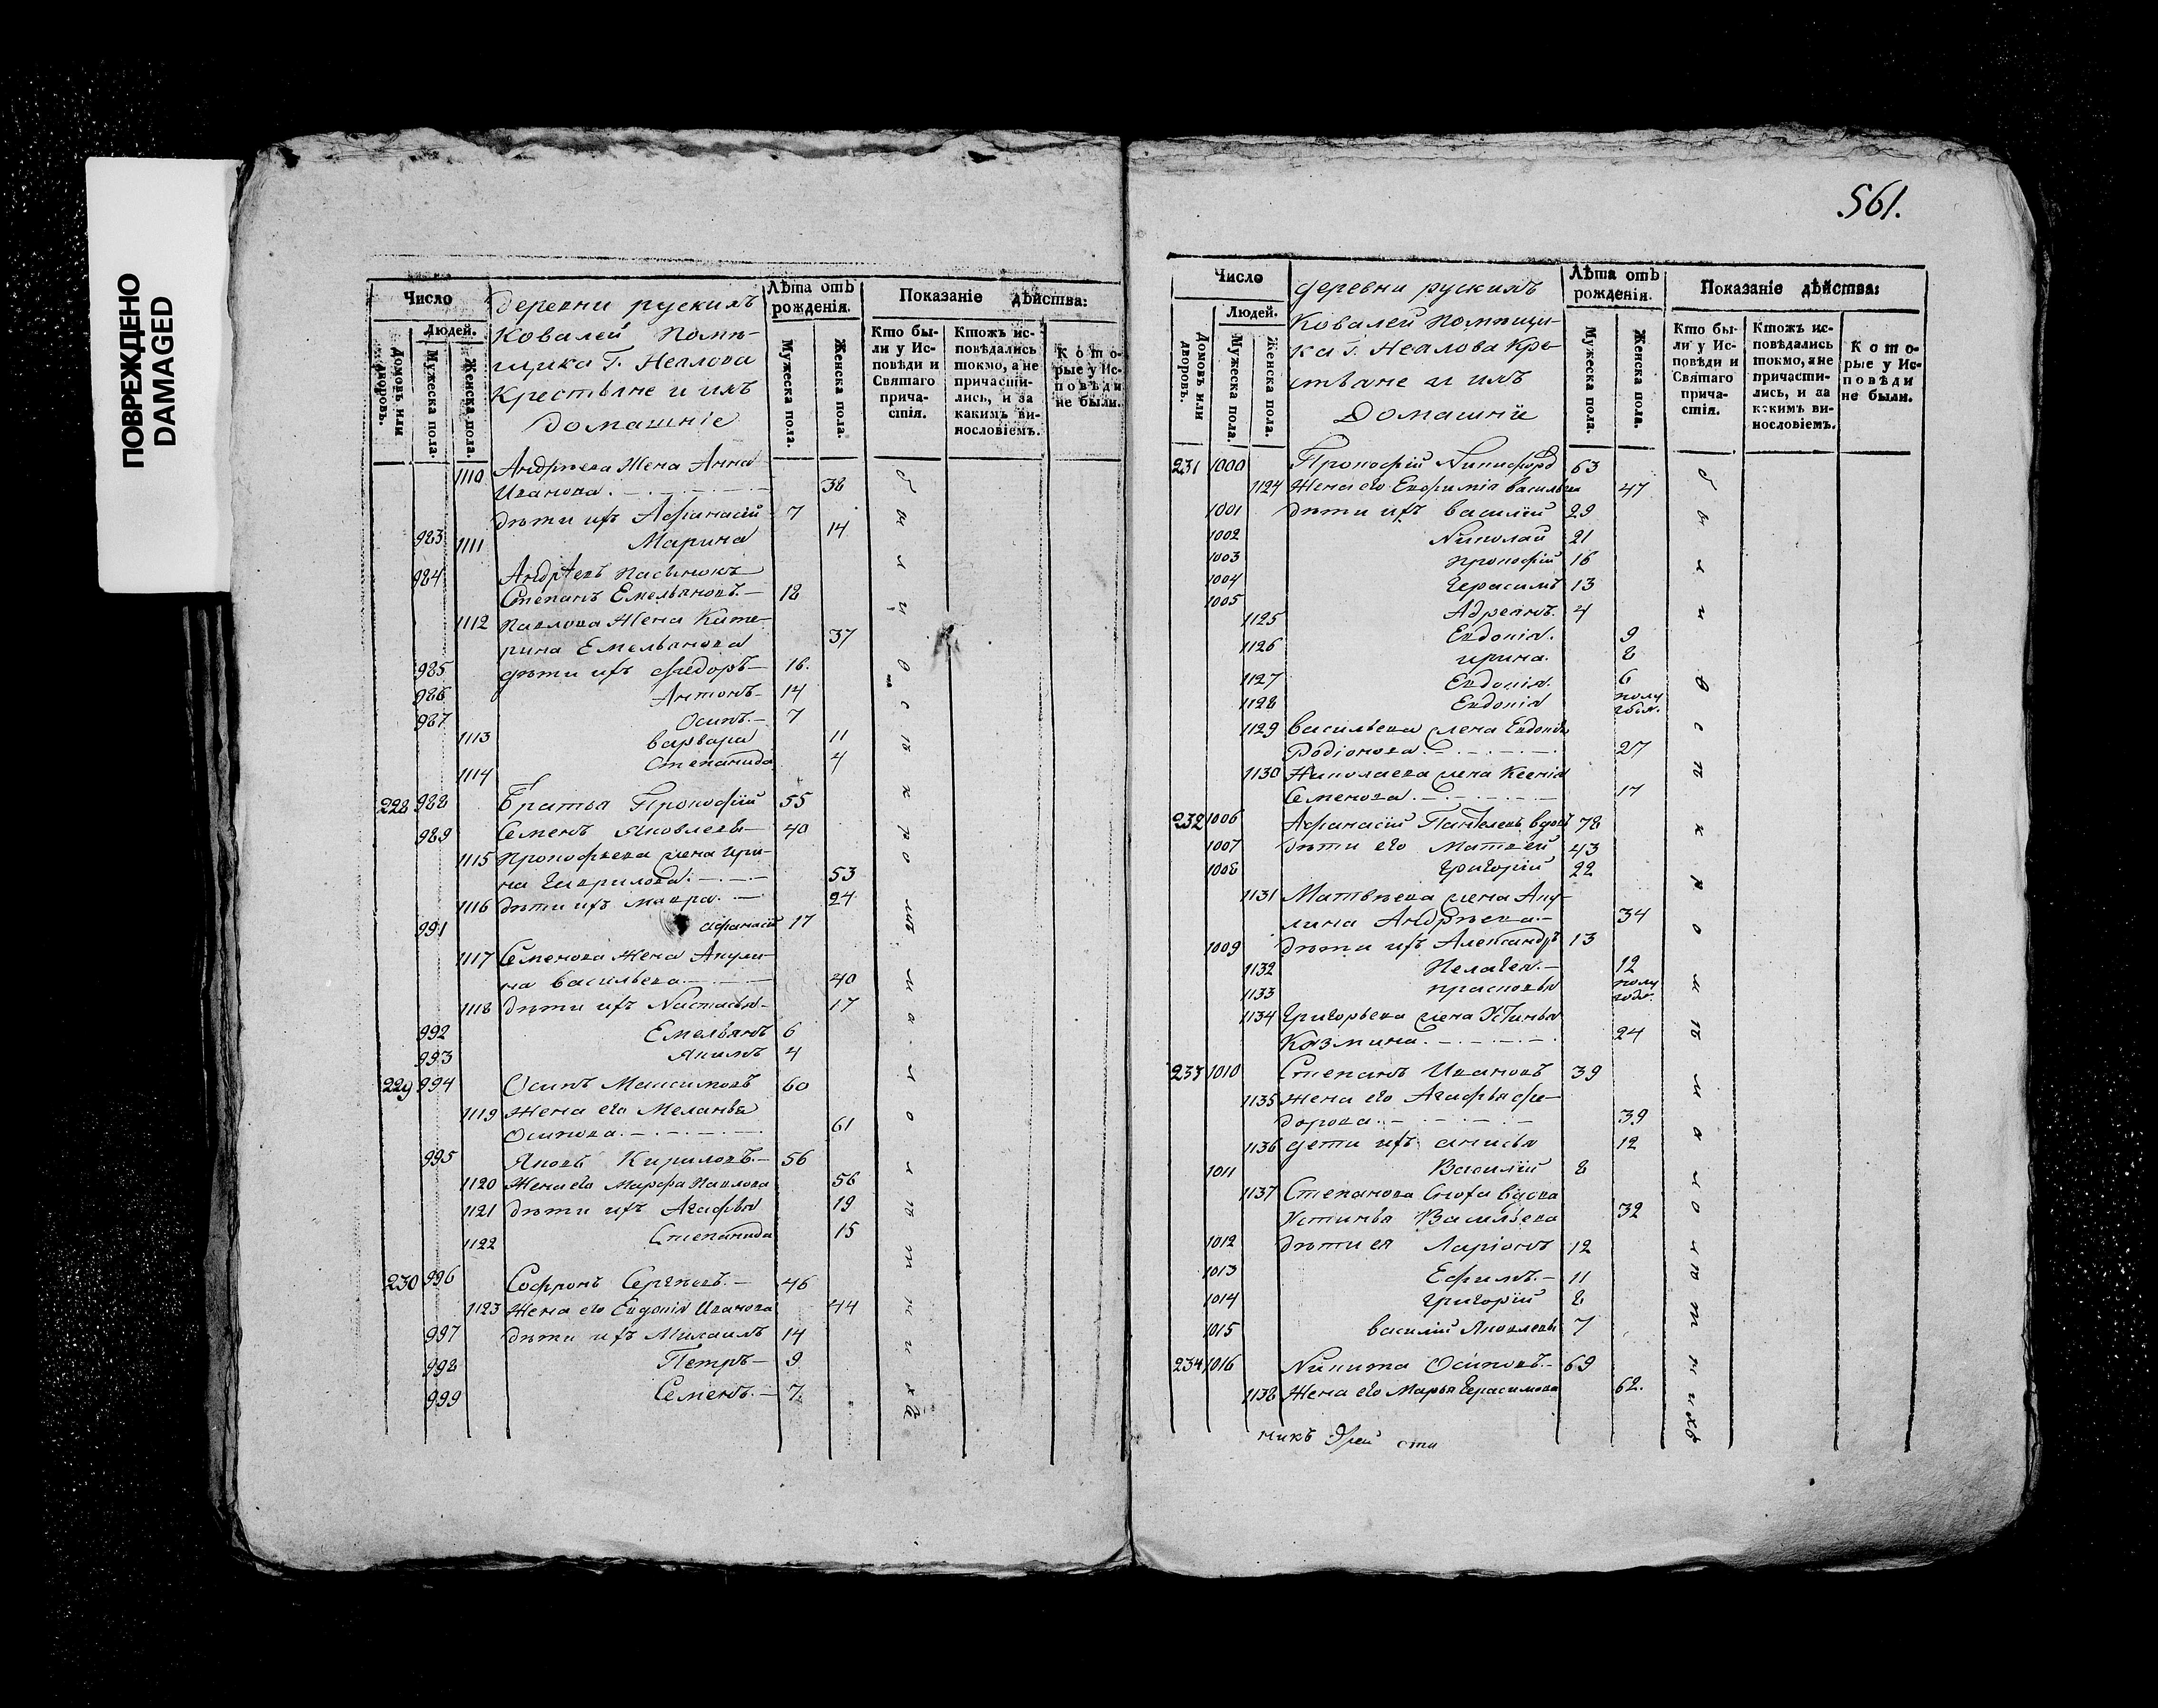 ПОВРЕЖДЕНО
DAMAGED
Число
Людей.
Домовъ или дворовъ.
Мужеска пола.
Женска пола.
деревни рускихъ
Ковалей Помѣ-
щика Г. Неялова
Крестьяне и ихъ
домашніе
Лѣта отъ рожденія.
Мужеска пола.
Женска пола.
Показаніе дѣйства:
Кто бы-
ли у Ис-
повѣди и
Святаго
прича-
стія.
Ктожъ ис-
повѣдались
токмо, а не
причасти-
лись, и за
какимъ ви-
нословіемъ.
К о т о-
рые у Ис-
п о в ѣ д и
не были.
1110 Андрѣева Жена Анна
Иванова. 38
дѣти ихъ Афанасій 7
983 1111 Марина 14
984 Андрѣевъ Пасынокъ
Степанъ Емельяновъ. 18
1112 Павлова Жена Кате-
рина Емельянова 37
985 дѣти ихъ Ѳедоръ 16.
986 Антонъ 14
987 Осипъ. 7
1113 варвара 11
1114 Степанида 4
228 988 Братья Прокофій 55
989 Семенъ Яковлевы 40
1115 Прокофьева жена Ири-
на Гаврилова. 53
1116 дѣти ихъ Мавра. 24
991 Афанасій 17
1117 Семенова Жена Акули-
на Васильева 40
1118 дѣти ихъ Настасья 17
992 Емельянъ 6
993 Якимъ 4
229 994 Осипъ Максимовъ 60
1119 Жена его Меланья
Осипова. 61
995 Яковъ Кириловъ. 56
1120 Жена его Марфа Павлова 56
1121 дѣти ихъ Агафья 19
1122 Степанида 15
230 996 Софронъ Сергѣевъ. 46
1123 Жена его Евдокія Иванова 44
997 дѣти ихъ Михаилъ 14
998 Петръ 9
999 Семенъ. 7
561.
Число
Людей.
Домовъ или дворовъ.
Мужеска пола.
Женска пола.
деревни рускихъ
Ковалей Помѣщи-
ка Г. Неялова Кре-
стьяне и ихъ
Домашніе
Лѣта отъ рожденія.
Мужеска пола.
Женска пола.
Показаніе дѣйства:
Кто бы-
ли у Ис-
повѣди и
Святаго
прича-
стія.
Ктожъ ис-
повѣдались
токмо, а не
причасти-
лись, и за
какимъ ви-
нословіемъ.
К о т о-
рые у Ис-
п о в ѣ д и
не были.
231 1000 Прокофій Никифоръ 63
1124 Жена его Евфимія Васильева 47
1001 дѣти ихъ Василій 29
1002 Николай 21
1003 Прокофій 16
1004 Герасимъ 13
1005 Адреянъ. 4
1125 Евдокія. 9
1126 Ирина. 8
1127 Евдокія. 6
1128 Евдокія полу годв.
1129 Васильева жена Евдокія
Родіонова. 27
1130 Николаева жена Ксенія
Семенова. 17
232 1006 Афанасій Пантелеевъ вдовъ 78
1007 дѣти его Матвей 43
1008 Григорій 22
1131 Матвѣева жена Аку-
лина Андрѣева. 34
1009 дѣти ихъ Александръ 13
1132 Пелагея. 12
1133 Прасковья полу годв.
1134 Григорьева жена Устинья
Казмина. 24
233 1010 Степанъ Ивановъ 39
1135 Жена его Агафья Фе-
дорова. 39
1136 дети ихъ анисья 12
1011 Василій 8
1137 Степанова Сноха вдова
Устинья Васильева 32
1012 дѣти ея Ларіонъ 12
1013 Ефимъ. 11
1014 Григорій 8
1015 Василій Яковлевъ 7
234 1016 Никита Осиповъ. 69
1138 Жена его Марья Герасимова 62.